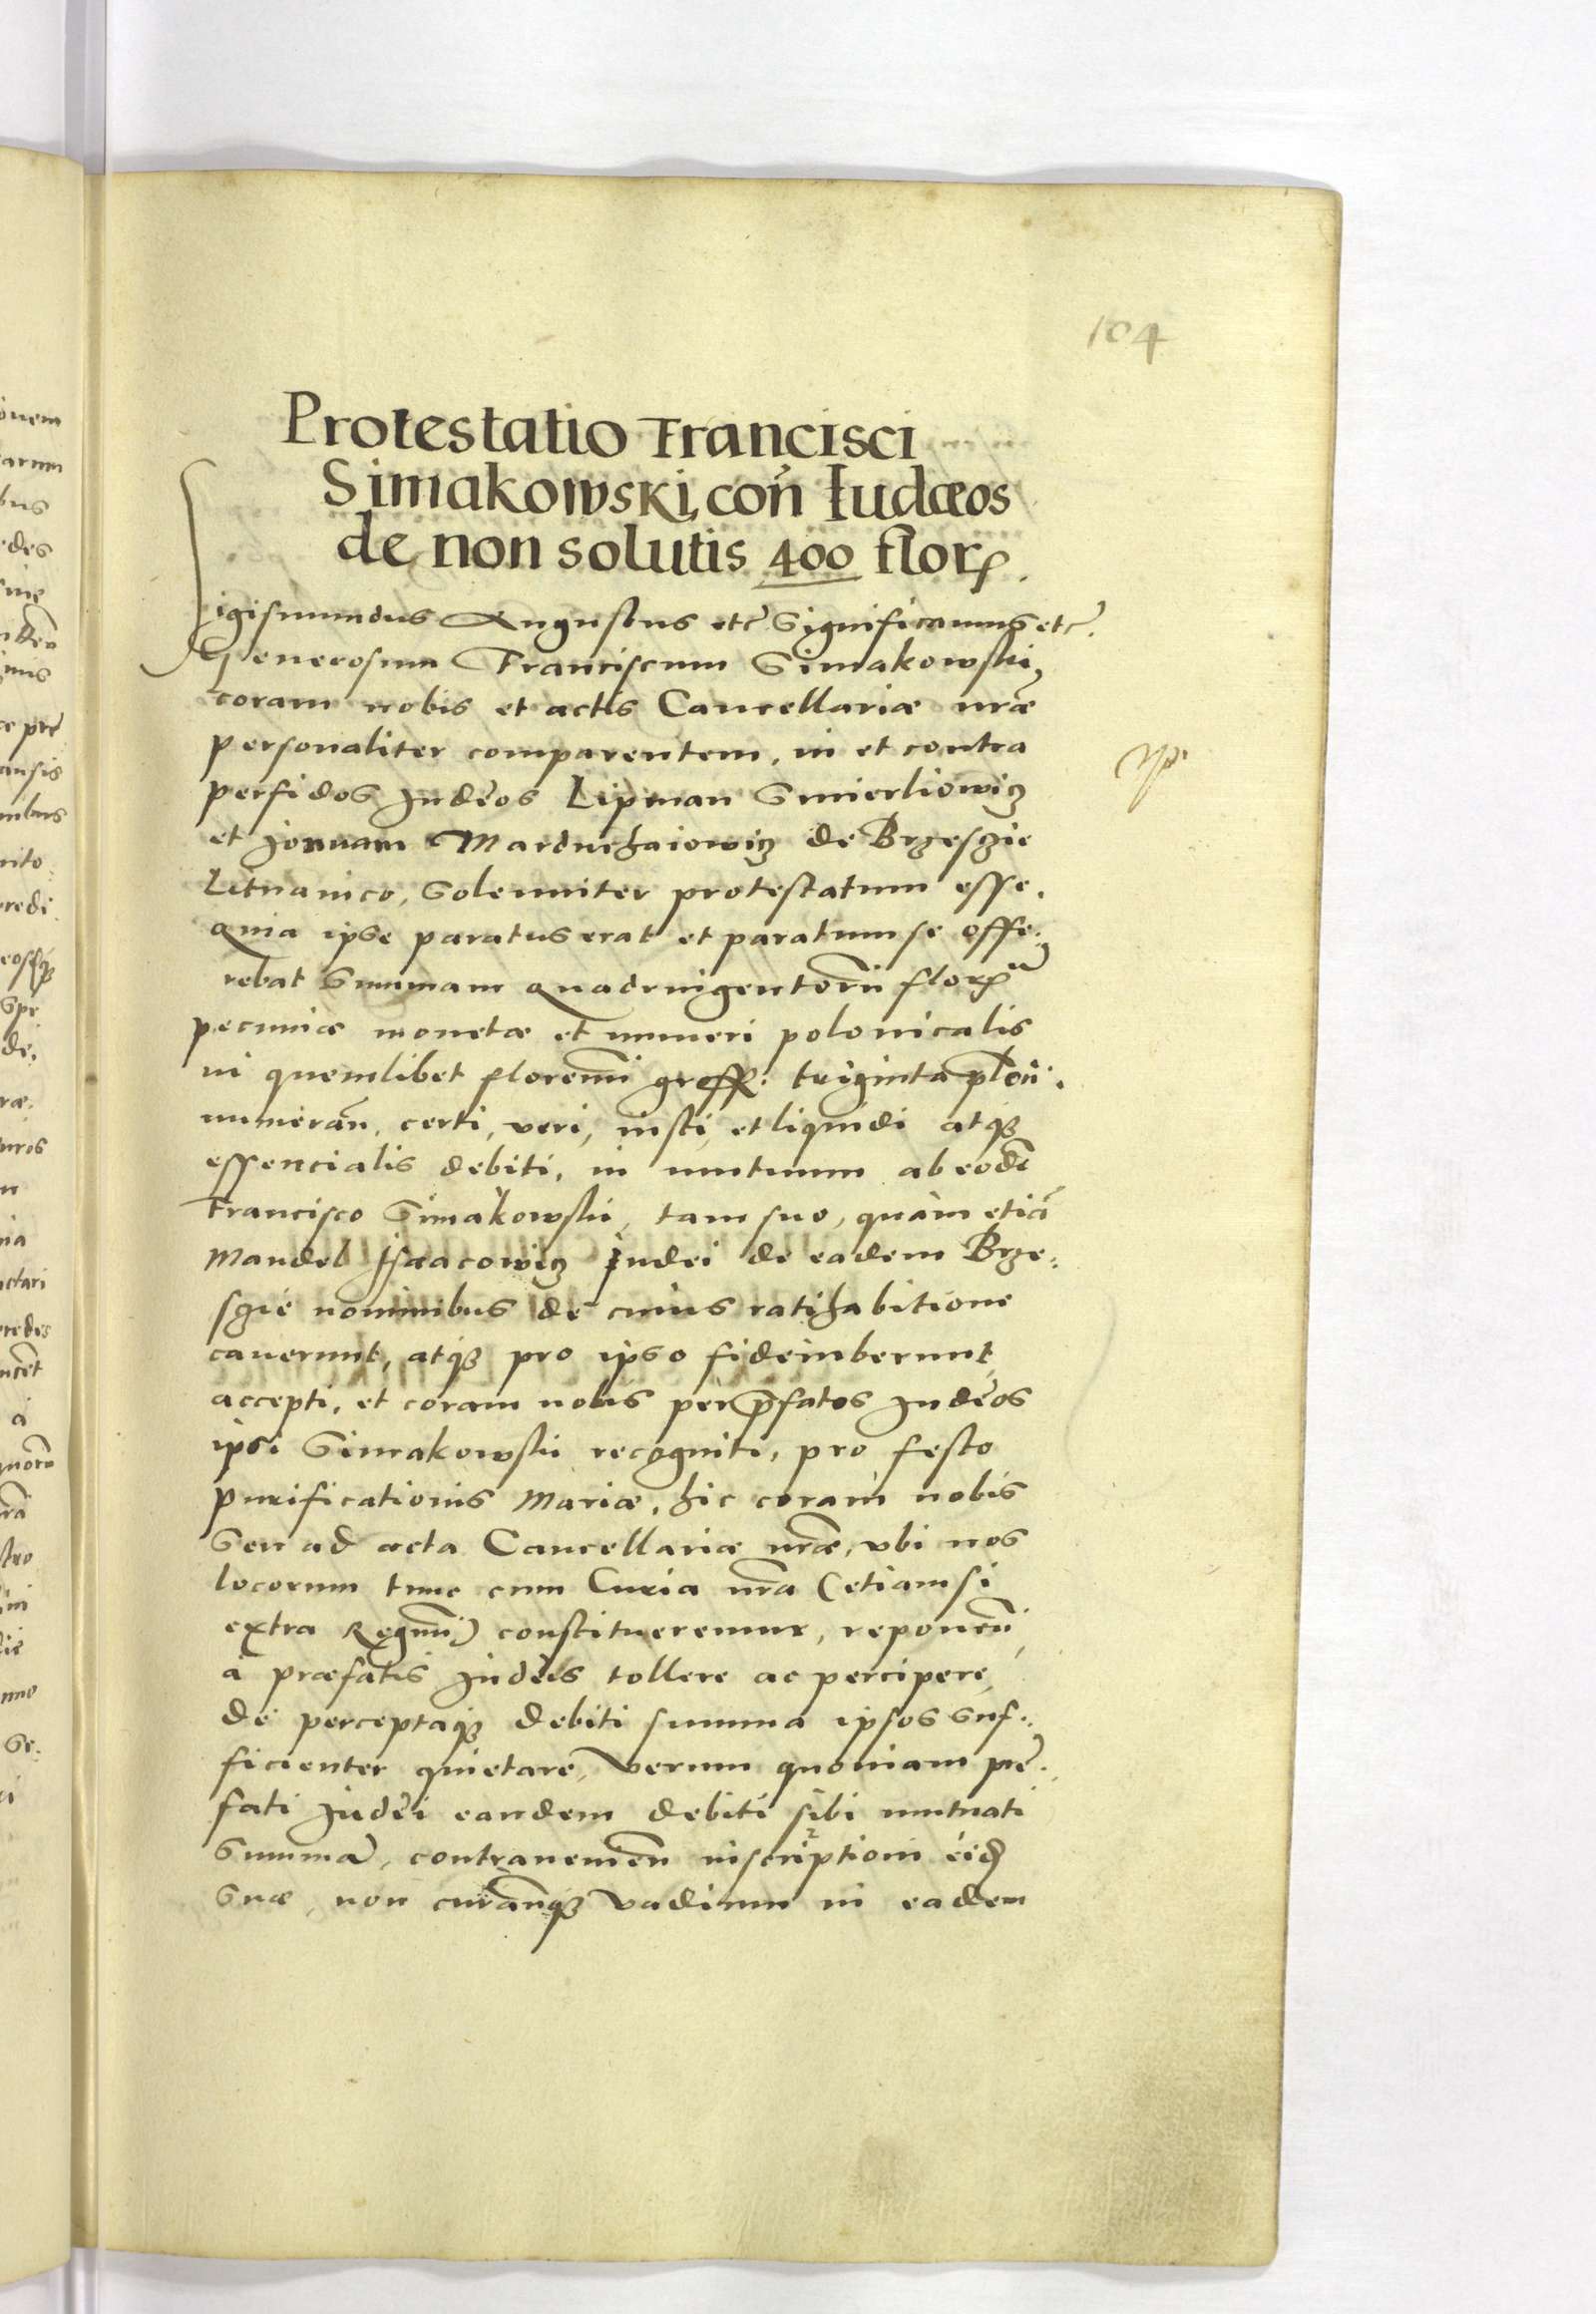 104
Protestatio Francisci
Simakowski, con̄ Iudæos
de non solutis 400 florꝝ.
Sigismundus Augustus etc̄ Significamus etc̄.
Generosum Franciscum Simakowski,
coram nobis et actis Cancellariæ nr̄æ
personaliter comparentem, in et contra
perfidos Iudęos Lipman Smierliowicz
et Jonnam Marduchaiowicz de Brzesczie
Lituanico, Solenniter protestatum esse.
Quia ipse paratus erat et paratum se offe:
rebat Summam Quadringentorū florꝝ
pecuniæ monetæ et numeri polonicalis
in quemlibet florenū gross: triginta polon̄.
numeran̄, certi, veri, iusti, et liquidi atqȝ
essencialis debiti, in mutuum ab eodē
Francisco Simakowski, tam suo, quàm etiā
Mandel Isaacowicz Iudei de eadem Brze:
sczie nominibus de cuius ratihabitione
caverunt, atqȝ pro ipso fideiuberunt,
accepti, et coram nobis per p̄fatos Iudęos
ipsi Simakowski recogniti, pro festo
purificationis Mariæ, hic coram nobis
Seu ad acta Cancellariæ nr̄æ, vbi nos
locorum tunc cum Curia nr̄a (etiam si
extra Regnū) constitueremur, reponen̄,
à præfatis Iudęis tollere ac percipere,
de perceptaqȝ debiti summa ipsos suf:
ficienter quietare, Verum quoniam prę:
fati Iudęi eandem debiti sibi mutuati
Summā, contraueniēn inscriptioni eidꝫ
Suæ, non curan̄qȝ vadium in eadem